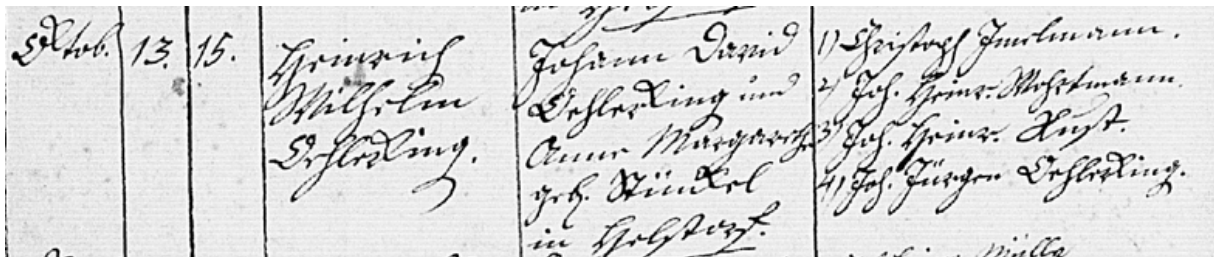 Oktob. 13. 15.
Heinrich
Wilhelm
Oehlerking.
Johann David
Oehlerking und
Anne Margarethe
geb. Stünkel
in Helstorf.
1) Christoph Imelmann.
2) Joh. Heinr. Wohrtmann.
3) Joh. Heinr. Rust.
4) Joh. Jürgen Oehlerking.